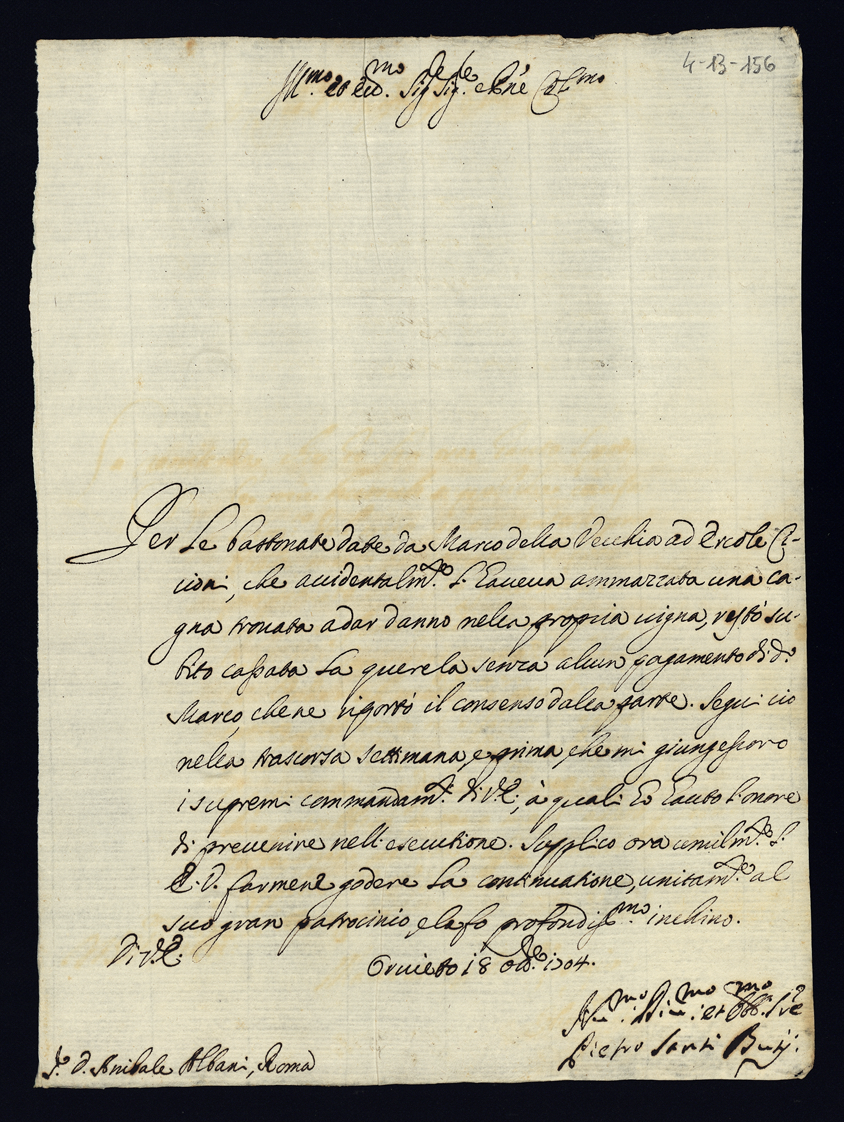 4-13-156
Ill.mo et Ecc.mo Sig.re Sig.re P.ne Col.mo
Per le bastonate date da Marco della Vecchia ad Ercole Ci-
cioni, che accidentalm.te l'haveva ammazzata una ca-
gna trovata a dar danno nella propria vigna, restò su-
bito cassata la querela senza alcun pagamento di d.o
Marco, che ne riportò il consenso dalla parte. Seguì ciò
nella trascorsa settimana, e prima, che mi giungessero
i supremi commandam.ti di V.E., à quali hò hauto l'onore
di prevenire nell'esecutione. Supplico ora umilm.te l'
E.V. farmene godere la continuatione, unitam.te al
suo gran patrocinio, e la fo profondiss.mo inchino.
Di V.E.
Orvieto 18 ott.re 1704.
Hu.mo Di.mo et Obb. Sre
Pietro Santi
S.r D. Anibale Albani, Roma